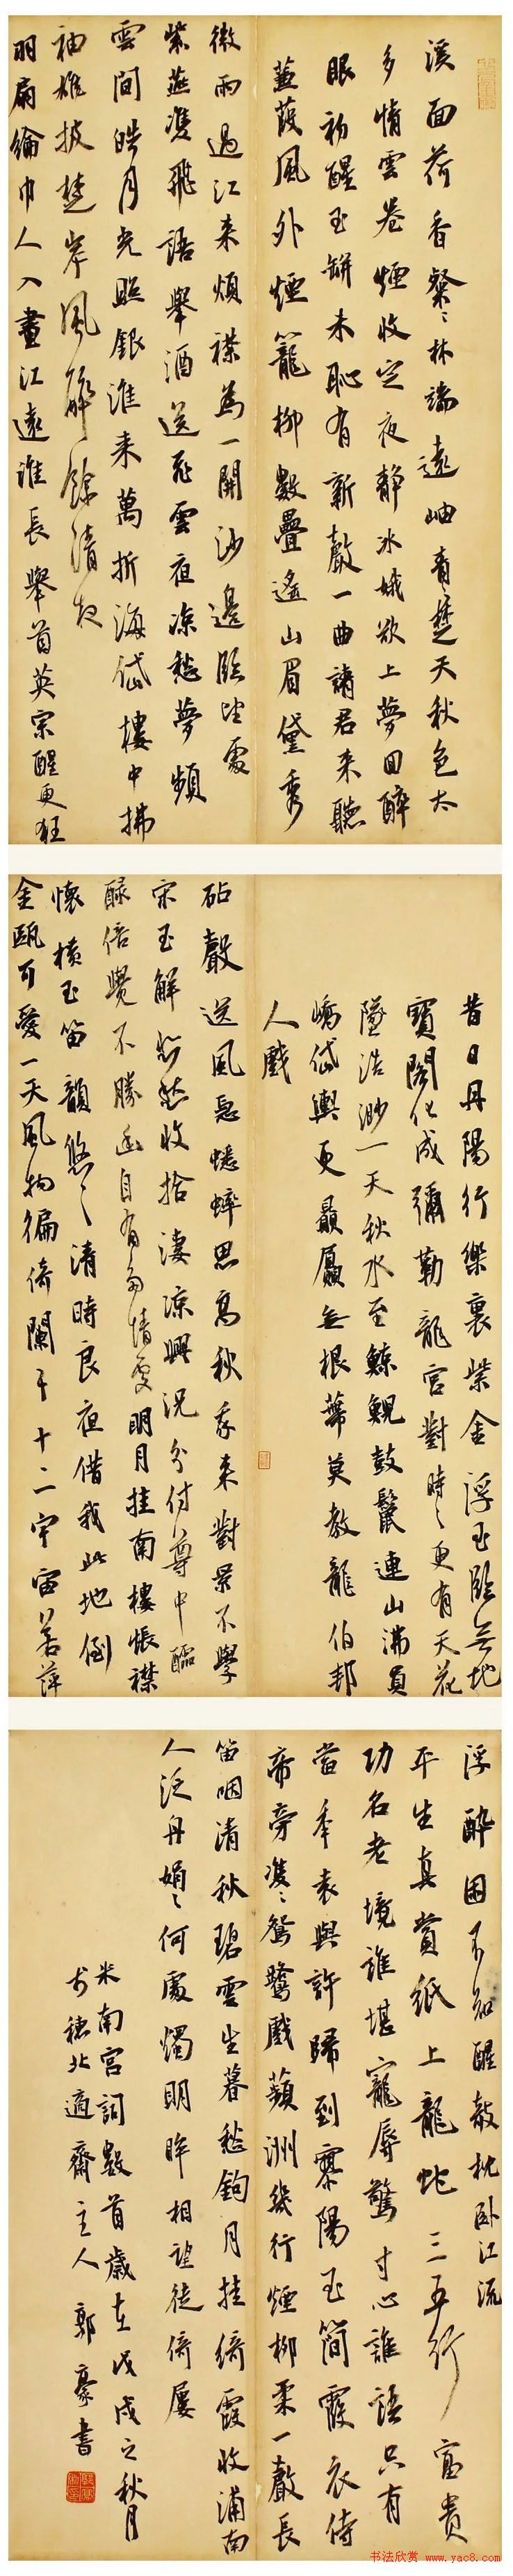 溪面荷香粲粲林端遠岫青青楚天秋色太
多情雲卷煙收定夜靜冰娥欲上夢回醉
眼初醒玉缾未恥有新聲一曲請君來聽
蒹葭風外煙籠柳數疊遙山眉黛秀
微雨過江來煩襟為一開沙邊臨坐處
紫燕雙飛語舉酒送飛雲夜涼愁夢頻
雲間皓月光照銀淮來萬折海岱樓中拂
袖雄披楚岸風 餘清夜
羽扇綸巾人入畫江遠淮長舉首英宗醒更狂
昔日丹陽行樂裏紫金浮玉臨無地
寶閣化成彌勒龍宮對時時更有天花
墜浩渺一天秋水至鯨鯢鼓鬣連山沸員
嶠岱輿更贔屭無根蒂莫教龍伯邦
人戲
砧聲送風急蟋蟀思高秋我來對景不學
宋玉解悲愁收拾淒涼興況分付尊中醽
醁倍覺不勝幽自有多情處明月挂南樓悵襟
懷橫玉笛韻悠悠清時良夜借我此地倒
金甌可愛一天風物徧倚闌干十二宇宙若萍
浮醉困不知醒欹枕臥江流
平生真賞紙上龍蛇三五行富貴
功名老境誰堪寵辱驚寸心誰語只有
當年袁與許歸到寥陽玉簡霞衣侍
帝旁雙雙鴛鷺戲蘋洲幾行煙柳柔一聲長
笛咽清秋碧雲生暮愁鉤月挂綺霞收浦南
人泛舟娟娟何處燭明眸相望徒倚屢
米南宮詞數首歲在戊戌之秋月
於穗北適齋主人郭豪書
书法欣赏 www.yac8.com